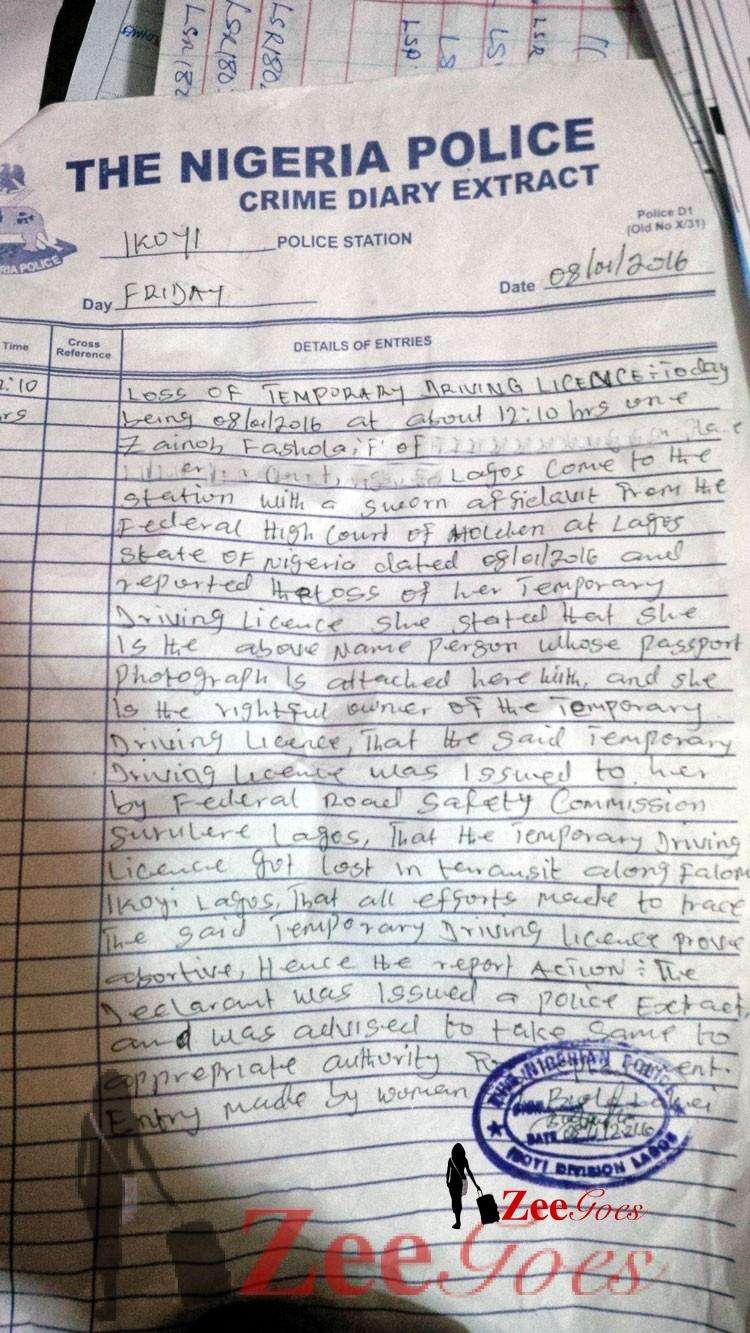 LSR180
LSR180.
LSR182
LSR
LS
LS
LSR
THE NIGERIA POLICE
CRIME DIARY EXTRACT
Police D1
(Old No X/31)
RIA POLICE
IKOYI POLICE STATION
Day FRIDAY Date 08/01/2016
Time Cross Reference DETAILS OF ENTRIES
2:10 LOSS OF TEMPORARY DRIVING LICENCE:Today
rs being 08/01/2016 at about 12:10 hrs one
Zainob Fashola, 'F' of
Lagos Come to the
station with a sworn affidavit from the
Federal High Court of Holden at Lagos
State of Nigeria dated 08/01/2016 and
reported the Loss of her Temporary
Driving Licence she stated that she
Is the above Name person whose passport
photograph Is attached here with, and she
Is the rightful owner of the Temporary
Driving Licence, That the said Temporary
Driving Licence was Issued to her
by Federal Road Safety Commission
Surulere Lagos, That the Temporary Driving
Licence got Lost in transit along Falom
Ikoyi Lagos, That all efforts made to trace
The said Temporary Driving licence prove
abortive, Hence the report Action: The
Declarant was Issued a police Extract,
and was advised to take same to
appropriate authority
Entry made by woman
THE NIGERIAN POLICE
DATE
IKOYI DIVISION LAGOS
ZeeGoes
ZeeGoes